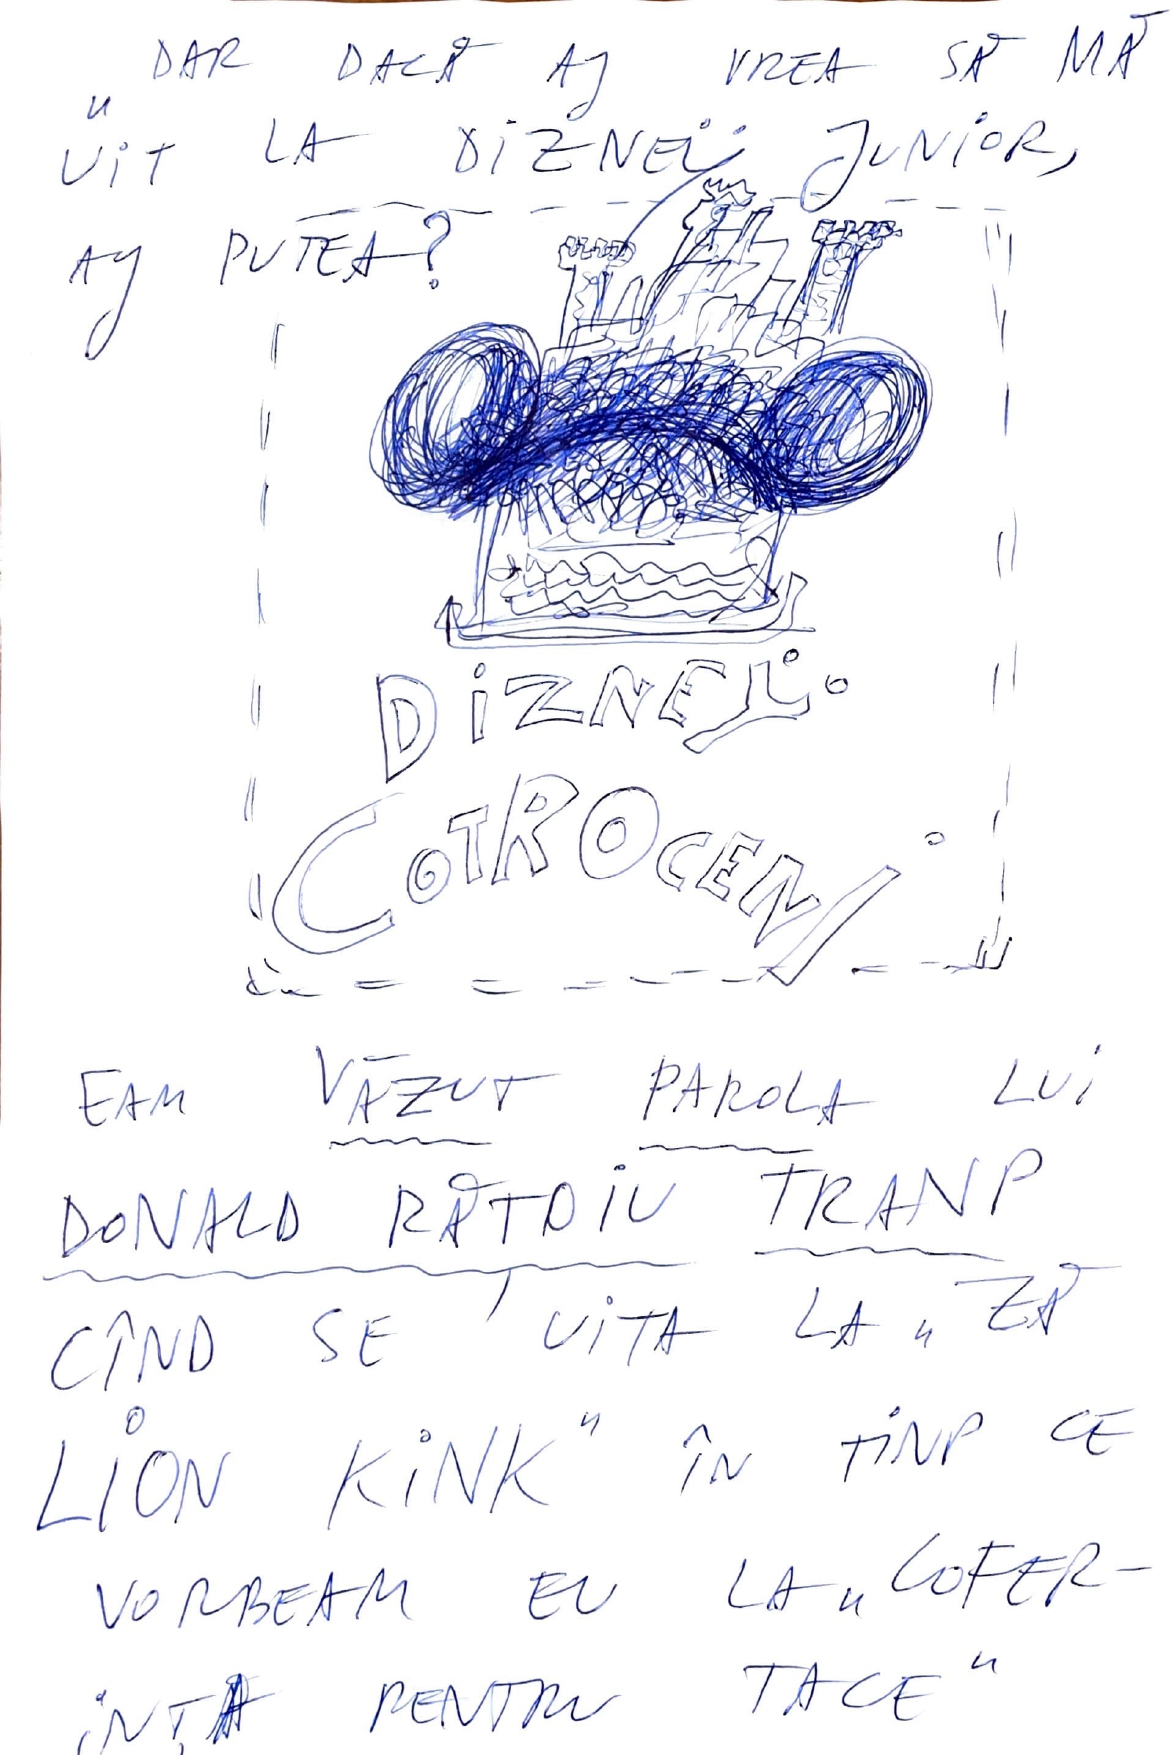 DAR DACĂ AJ VREA SĂ MĂ
"UIT LA DIZNEIJ JUNIOR,
AJ PUTEA?
DIZNEIJ
COTROCENJ
EAM VĂZUT PAROLA LUI
DONALD RĂTOIU TRANP
CÎND SE UITA LA „ZĂ
LION KINK" ÎN TINP CE
VORBEAM EU LA „COFER-
INȚA PENTRU TACE"